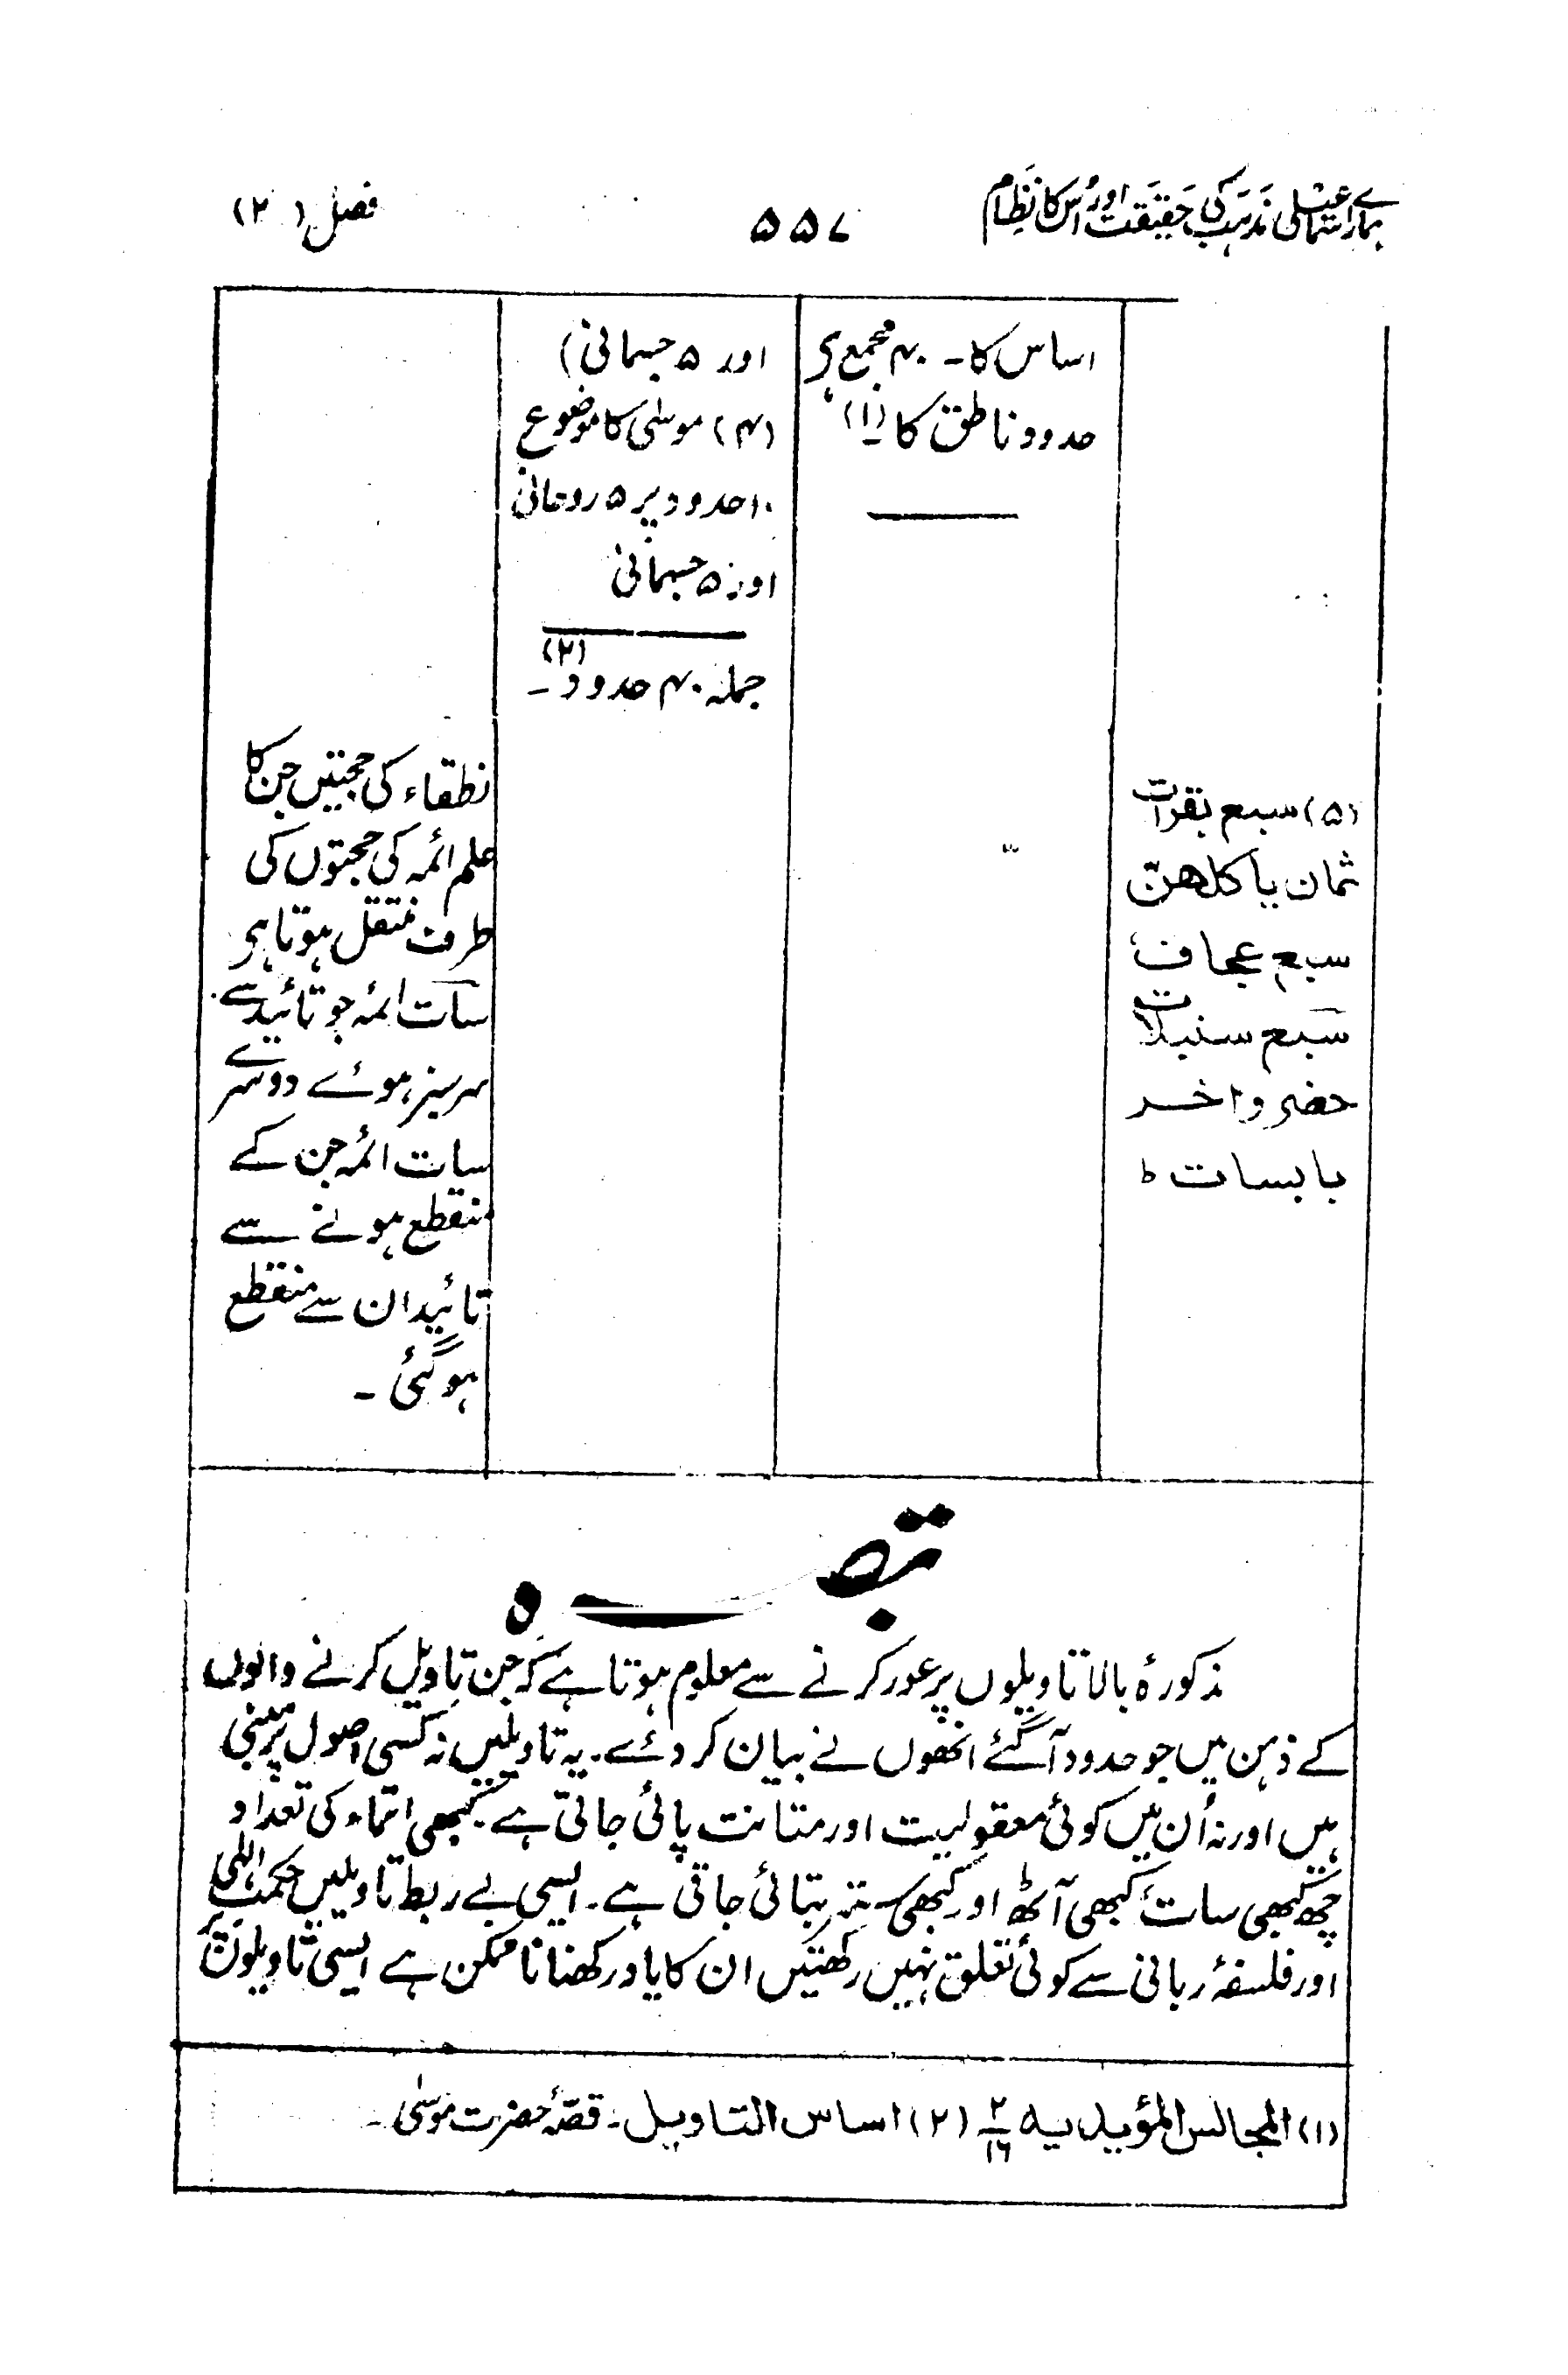 ہمارے اسماعیلی مذہب کی حقیقت اور اُس کا نظام
۵۵۷
فصل (۲)
اساس کا ۔ ۴۰ مجمع ہی
حدود ناطق کا (۱)۔
اور ۵ جسمانی)
(۴) موسٰی کا موضوع
۱۰ حدود پر ۵ روحانی
اور ۵ جسمانی
جملہ ۴۰ حدود (۲)۔
(۵) سبع بقرات
ثمان یاکلھن
سبع عجاف
سبع سنبلات
خضر واخر
یابسات ط
نطقاء کی حجتیں جن کا
علم ائمہ کی حجتوں کی
طرف منتقل ہوتا ہی
سات ائمہ جو تائید سے
سرسبز ہوئے دوسرے
سات ائمہ جن کے
منقطع ہونے سے
تائید ان سے منقطع
ہو گئی ۔
تبصرہ
مذکورۂ بالا تاویلوں پر غور کرنے سے معلوم ہوتا ہے کہ جن تاویل کرنے والوں
کے ذہن میں جو حدود آ گئے انھوں نے بیان کر دئے ۔ یہ تاویلیں نہ کسی اصول پر مبنی
ہیں اور نہ اُن میں کوئی معقولیت اور متانت پائی جاتی ہے ۔ کبھی اتماء کی تعداد
چھ کبھی سات کبھی آٹھ اور کبھی سترہ بتائی جاتی ہے ۔ ایسی بے ربط تاویلیں حکمتِ الٰہی
اور فلسفۂ ربانی سے کوئی تعلق نہیں رکھتیں ان کا یاد رکھنا نا ممکن ہے ایسی تاویلوں پر
(۱) المجالس المؤیدیہ ۲/۱۶ (۲) اساس التاویل ۔ قصۂ حضرت موسٰی ۔